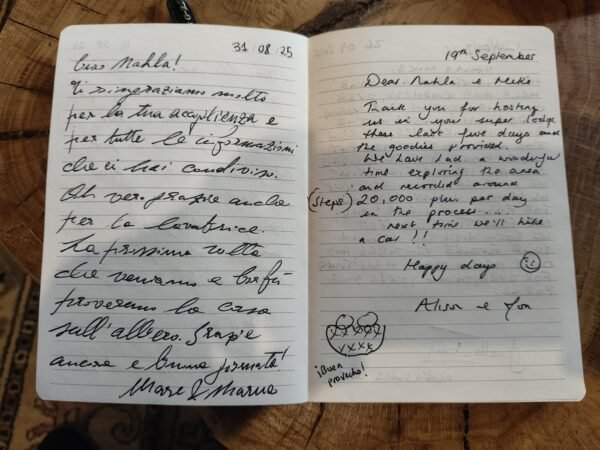 31/08/25
Ciao Mahla!
Ti ringraziamo molto
per la tua accoglienza e
per tutte le informazioni
che ci hai condiviso.
Oh vero, grazie anche
per la lavatrice.
La prossima volta
che veniamo a Corfù
proveremo la casa
sull'albero. Grazie
ancora e buona giornata!
Marc & Marua
19th September
Dear Mahla &
Thank you for hosting
us in you super lodge
these last five days and
the goodies provided.
We have had a wonderful
time exploring the area
and recorded around
(steps) 20,000 plus per day
in the process....
next time we'll hike
a car!!
Happy days
Alison &
¡Buen
provecho!